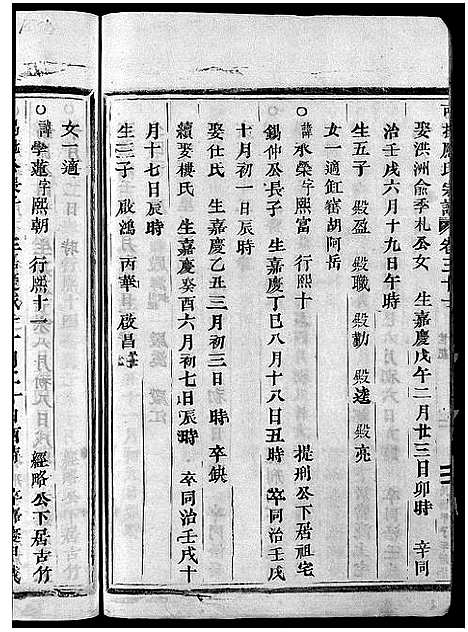 娶洪洲俞季札公女 生嘉慶戊午二月廿三日卯時 卒同
治壬戌六月十九日午時
生五子 殿盈 殿職 殿勤 殿逵 殿亮
女一適缸窰胡阿岳
○諱永榮字熙富 行熙十 提刑公下居祖宅
錫仲公長子 生嘉慶丁巳八月十八日丑時 卒同治壬戌
十月初一日辰時
娶仕氏 生嘉慶乙丑三月初三日時 卒缺
續娶樓氏 生嘉慶癸酉六月初七日辰時 卒同治壬戌十
月十七日辰時
生三子 啟鴻 丙華 啟昌
女一適
○諱學蓮字熙朝 行熙十一 經略公下居古竹